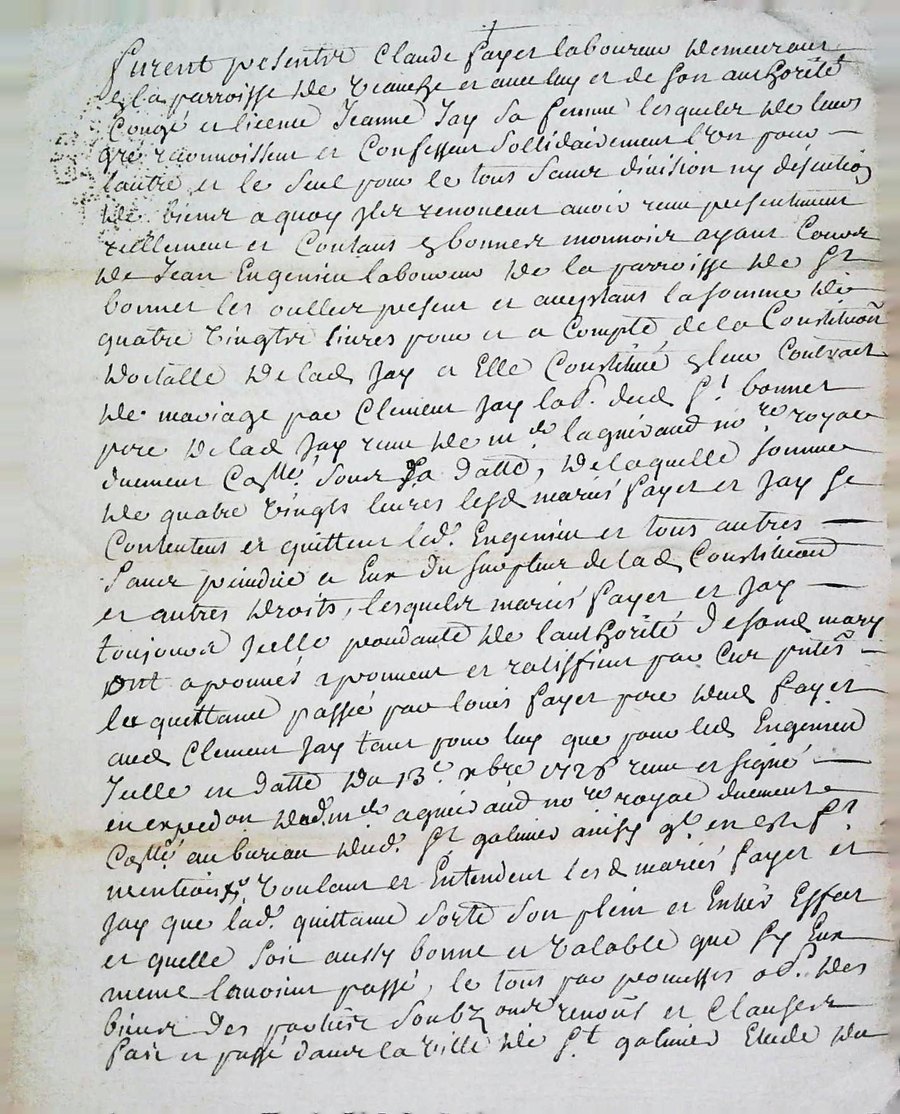 furent presentz Claude payer laboureur demeurant
en la parroisse de veauche et avec luy et de son authorité
Congé et licence Jeanne Jay sa femme lesquelz de leurs
gré reconnoissent et Confessent sollidairement l'un pour
lautre et le seul pour le tous sans division ny discution
de biens a quoy ils renoncent avoir receu presentement
reellement et Contans en bonnes monnoies ayant Cours
de Jean Engenieu laboureur de la parroisse de St
bonnet les oulles present et aceptans la somme de
quatre vingtz livres pour et a Compte de la Constituõn
dottalle de lad Jay et Elle Constitué en leur Contract
de mariage par Clement Jay lab. dud St bonnet
pere de lad Jay receu de me laguéraud nore royal
duement Collé. sous sa datte, de laquelle somme
de quatre vingts livres lesd mariés payer et Jay se
Contentent et quittent led. Engenieu et tous autres
sans prejudice a Eux du surplus de la d Constitution
et autres droits, lesquelz mariés payer et Jay
toujours Icelle procedante de l'authorité de son d mary
ont aprouvés aprouvent et ratiffient par Ces pntes
la quittance passée par louis payer pere dud payer
aud Clement Jay tant pour luy que pour led Engenieu
Icelle en datte du 13e xbre 1728 receu et signé
en expedõn dud. me aguéraud nore royal duement
Collé. au bureau dud. St galmier ainsy qu. en est ft
mention, voulant et Entendent les d mariés payer et
Jay que lad. quittance sorte son plein et Entier Effect
et quelle soit aussy bonne et valable que sy Eux
meme lavoient passé, le tous par promesses ob.. des
biens des parties soubz renons et Clauses
fait et passé dans la ville de St galmier Etude du